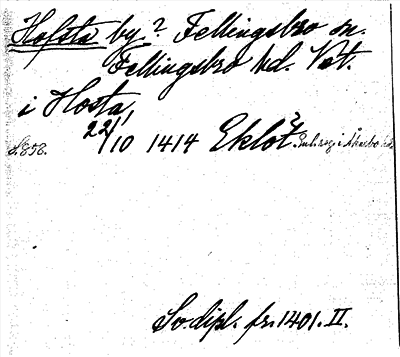 Hofsta by? Fellingsbro sn.
Fellingsbro hd. Vst.
i Hosta,
S.858. 22/10 1414 Eklöf? Enl. reg. i Åkerbo hd.
Sv. dipl. fr. 1401. II.